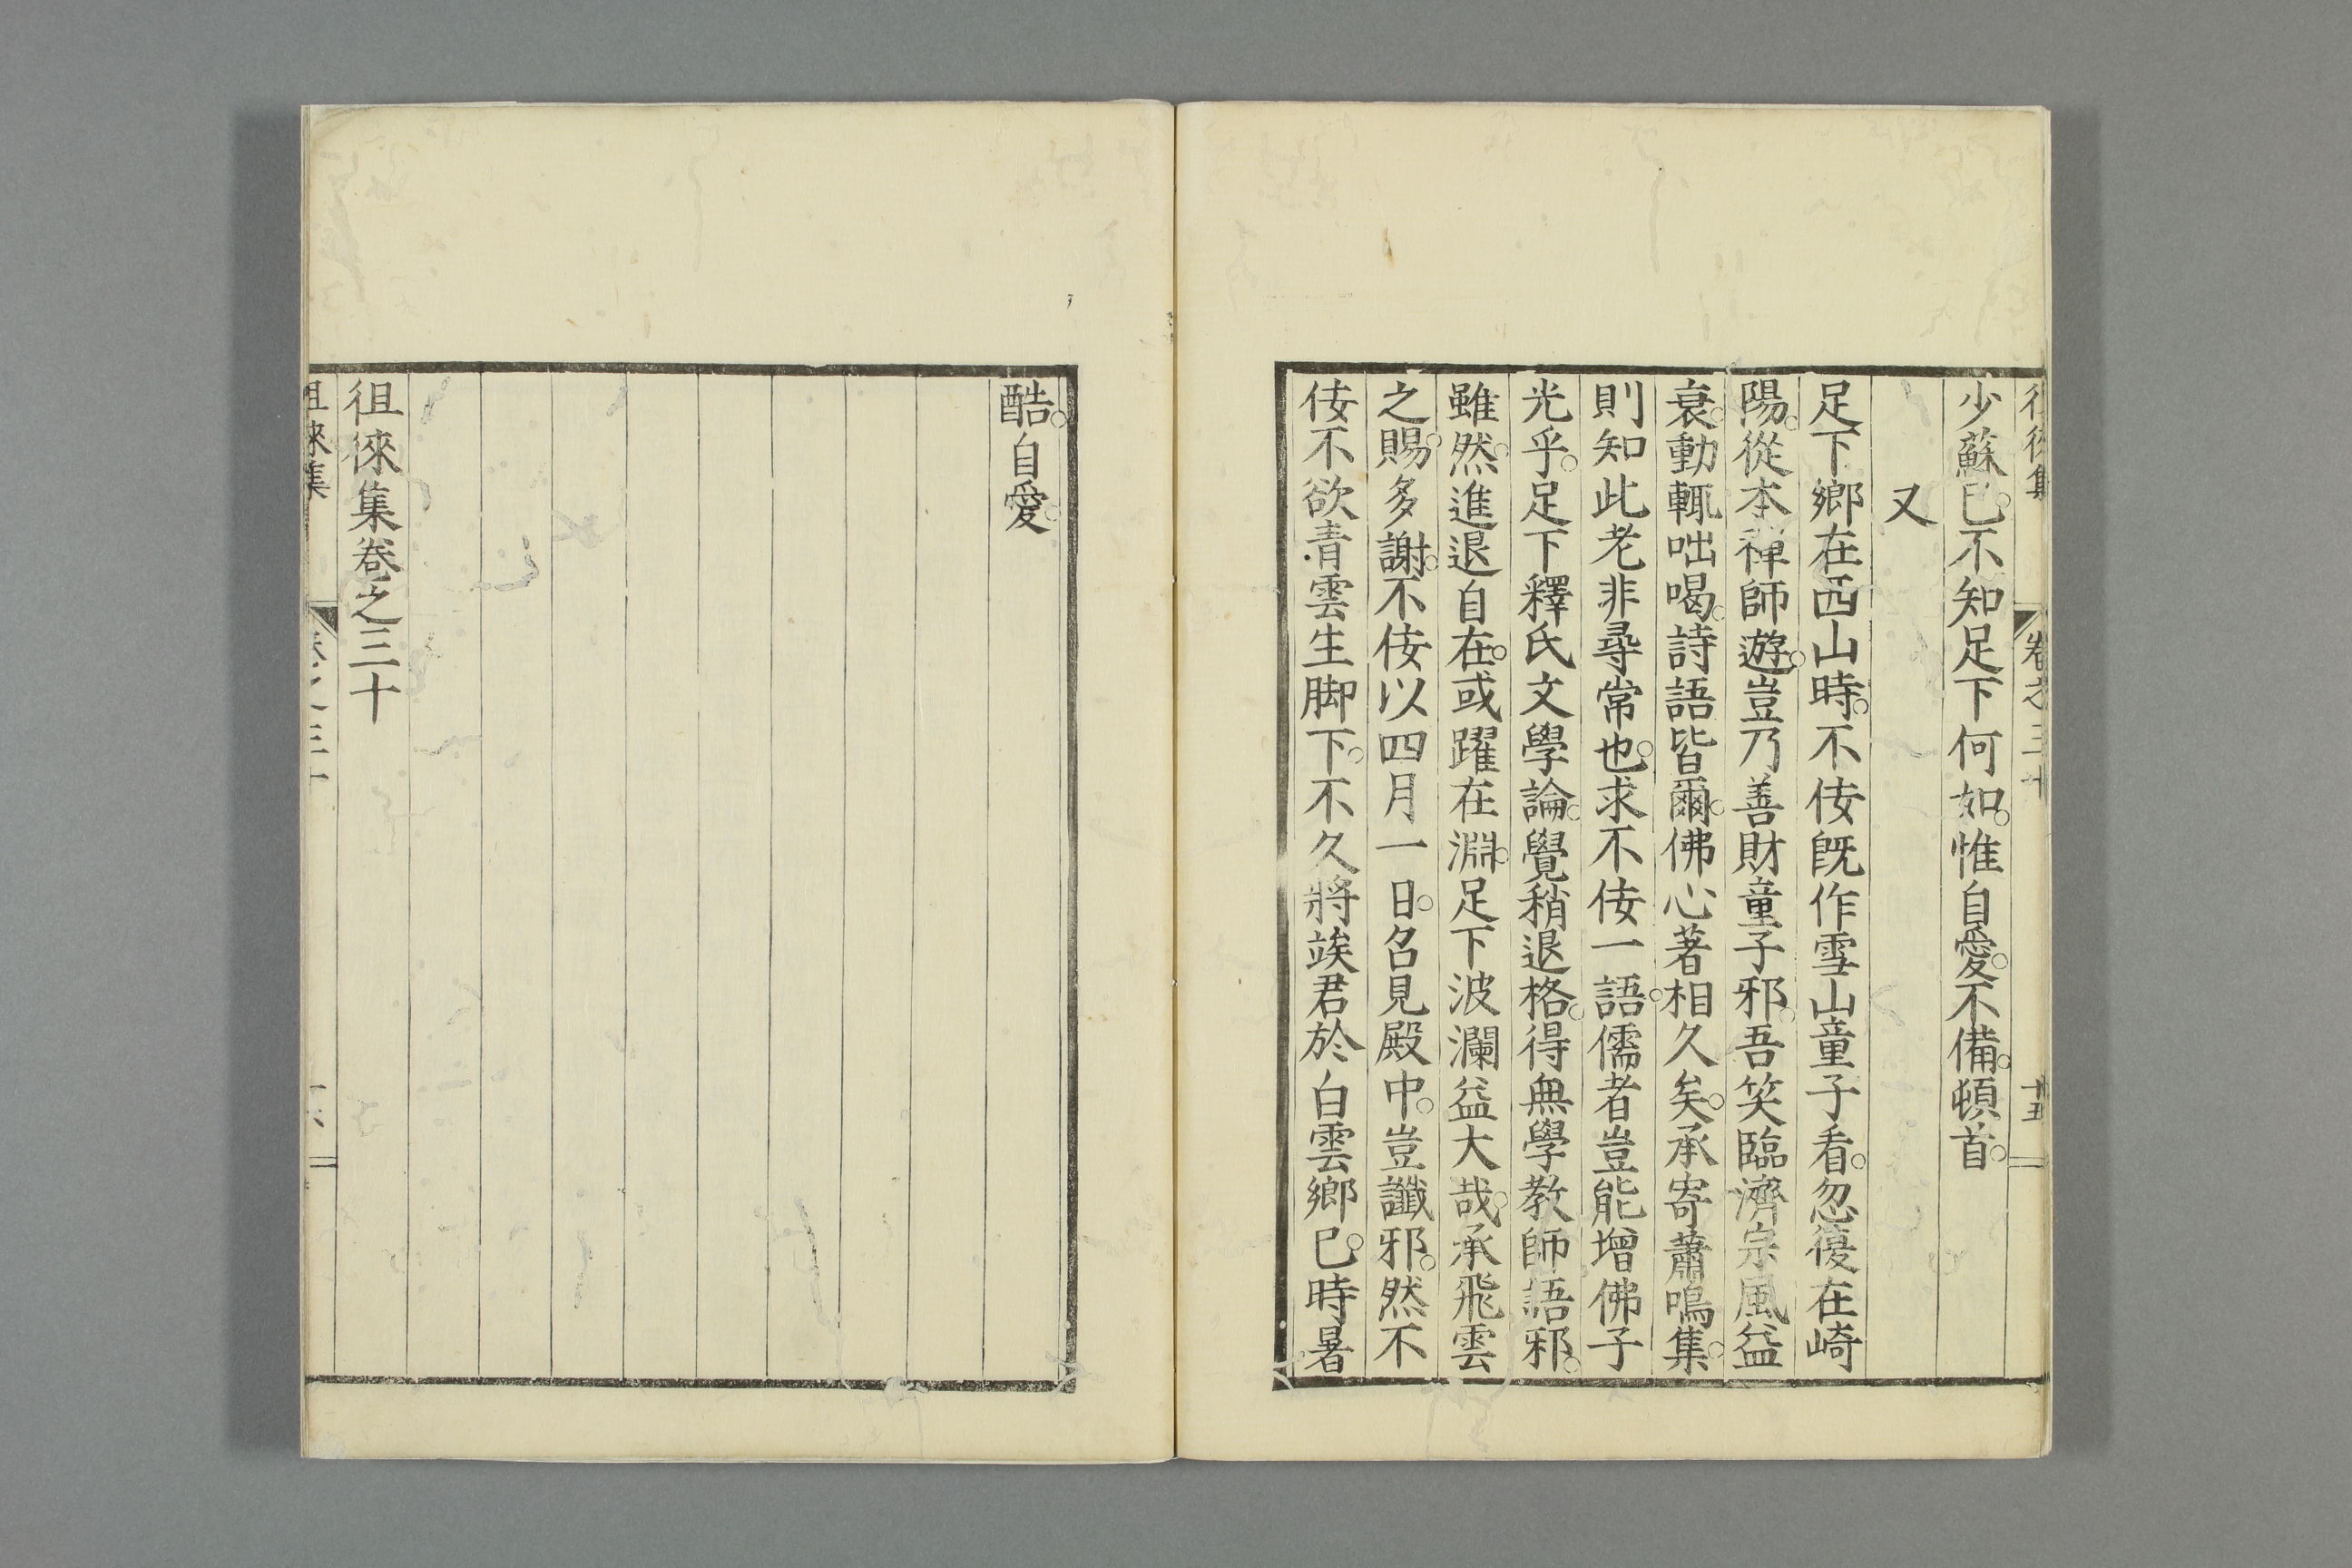 少蘇已不知足下何如惟自愛不備頓首
又
足下鄉在西山時不佞旣作雪山童子看忽復在崎
陽從本禪師遊豈乃善財童子邪吾笑臨濟宗風益
衰動輒咄喝詩語皆爾佛心著相久矣承寄蕭鳴集
則知此老非尋常也求不佞一語儒者豈能增佛子
光乎足下釋氏文學論覺稍退格得無學教師語邪
雖然進退自在或躍在淵足下波瀾益大哉承飛雲
之賜多謝不佞以四月一日召見殿中豈讖邪然不
佞不欲青雲生脚下不久將竢君於白雲鄉已時暑
酷自愛
徂徠集卷之三十